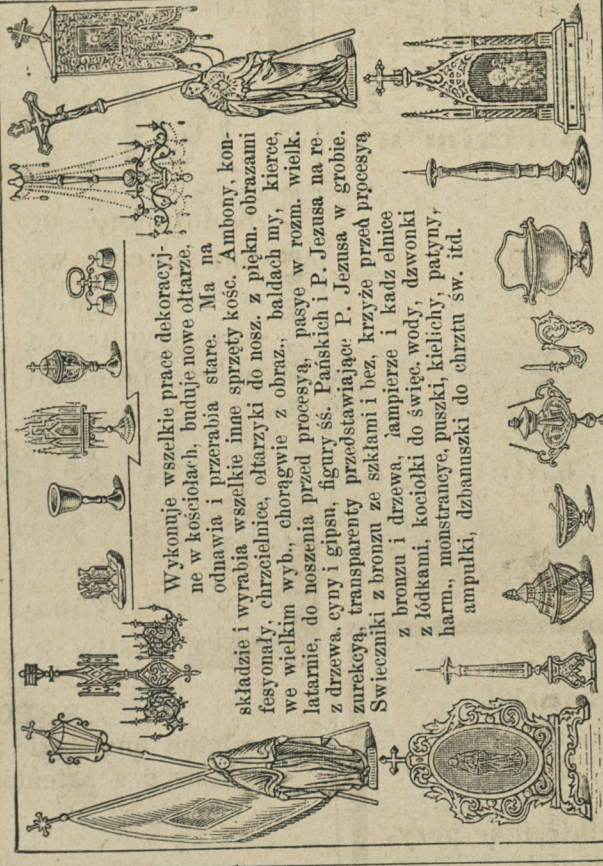 Wykonuje wszelkie prace dekoracyj-
ne w kościołach, buduje nowe ołtarze,
odnawia i przerabia stare. Ma na
składzie i wyrabia wszelkie inne sprzęty kośc. Ambony, kon-
fesyonały, chrzcielnice, ołtarzyki do nosz. z piękn. obrazami
we wielkim wyb., chorągwie z obraz., baldach my, kierce,
latarnie, do noszenia przed procesyą, pasye w rozm. wielk.
z drzewa, cyny i gipsu, figury śś. Pańskich i P. Jezusa na re-
zurekcyą, transparenty przedstawiające P. Jezusa w grobie.
Swieczniki z bronzu ze szkłami i bez, krzyże przed procesyą
z bronzu i drzewa, lampierze i kadz elnice
z łódkami, kociołki do święc. wody, dzwonki
harm., monstrancye, puszki, kielichy, patyny,
ampułki, dzbanuszki do chrztu św. itd.